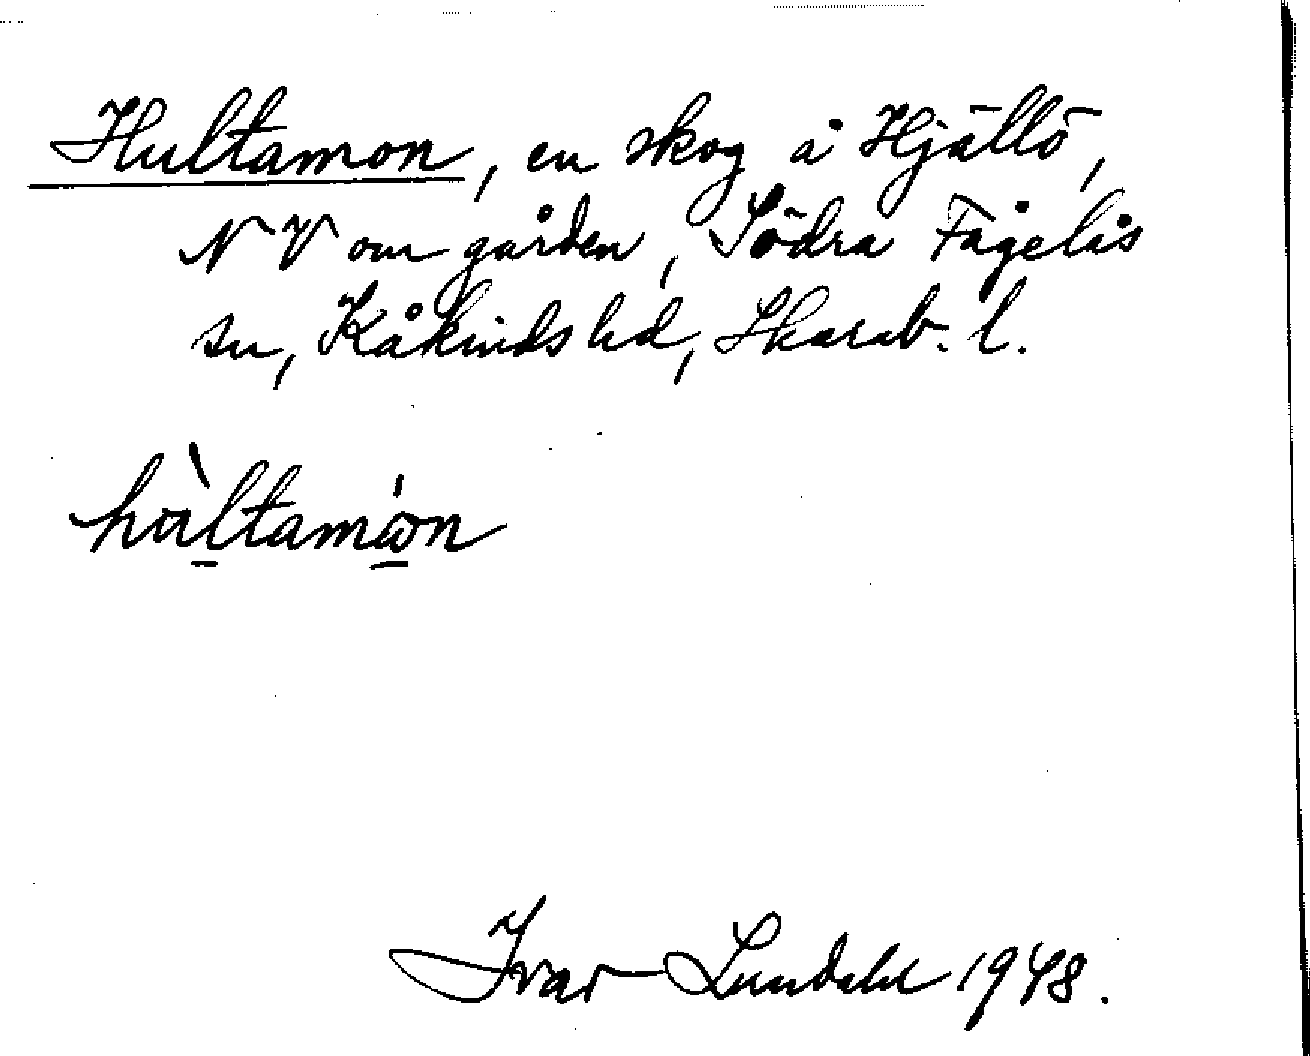 Hultamon, en skog å Hjällö,
NV om gården, Södra Fågelås
sn, Kåkinds hd, Skarab. l.
Ivar Lundahl 1948.